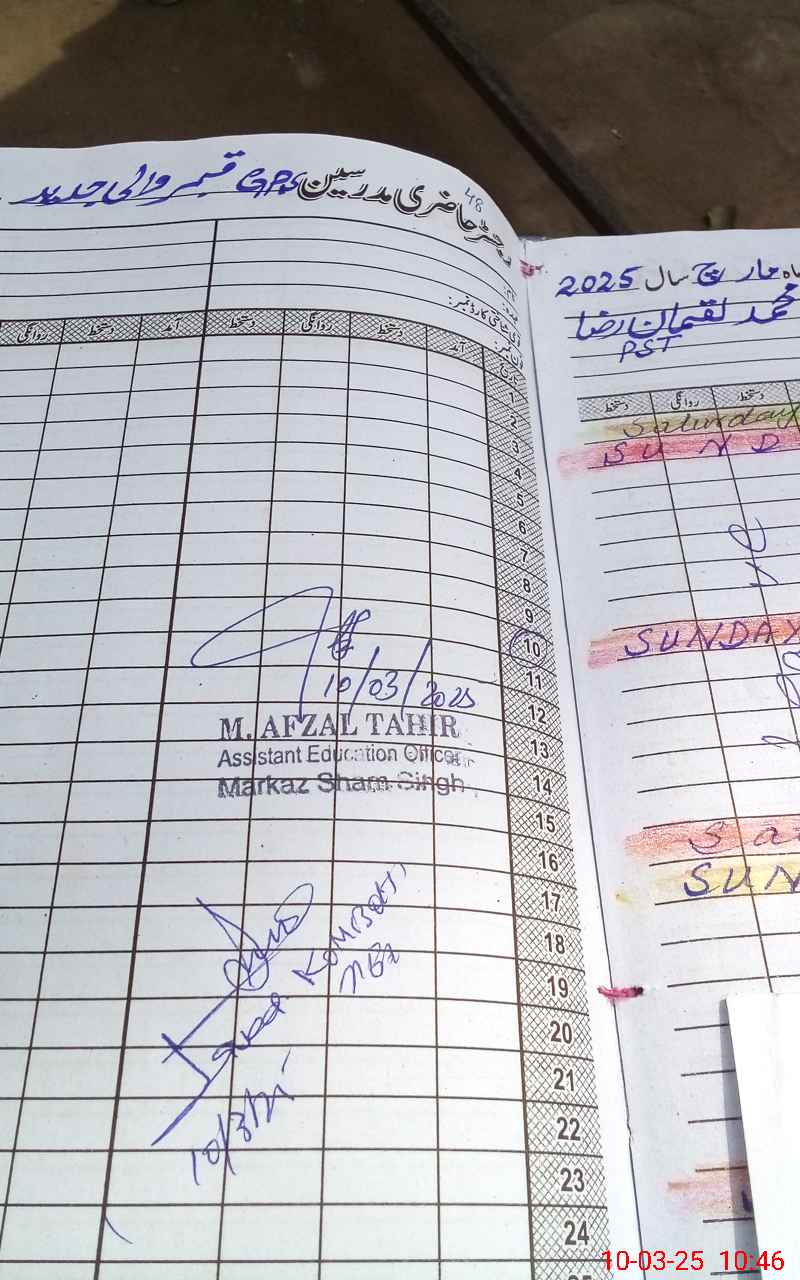 رجسٹر حاضری مدرسین GPS قسمر والی جدید
48
نام:
عہدہ:
شناختی کارڈ نمبر:
فون نمبر:
تاریخ آمد دستخط روانگی دستخط آمد دستخط روانگی
1
2
3
4
5
6
7
8
9
10
11
12
13
14
15
16
17
18
19
20
21
22
23
24
25
10/03/2025
M. AFZAL TAHIR
Assistant Education Officer
Markaz Sham Singh
10/3/
ماہ مارچ سال 2025
محمد لقمان رضا
PST
دستخط روانگی دستخط
Saturday
SUND
SUNDAY
Sa
SUN
10-03-25 10:46